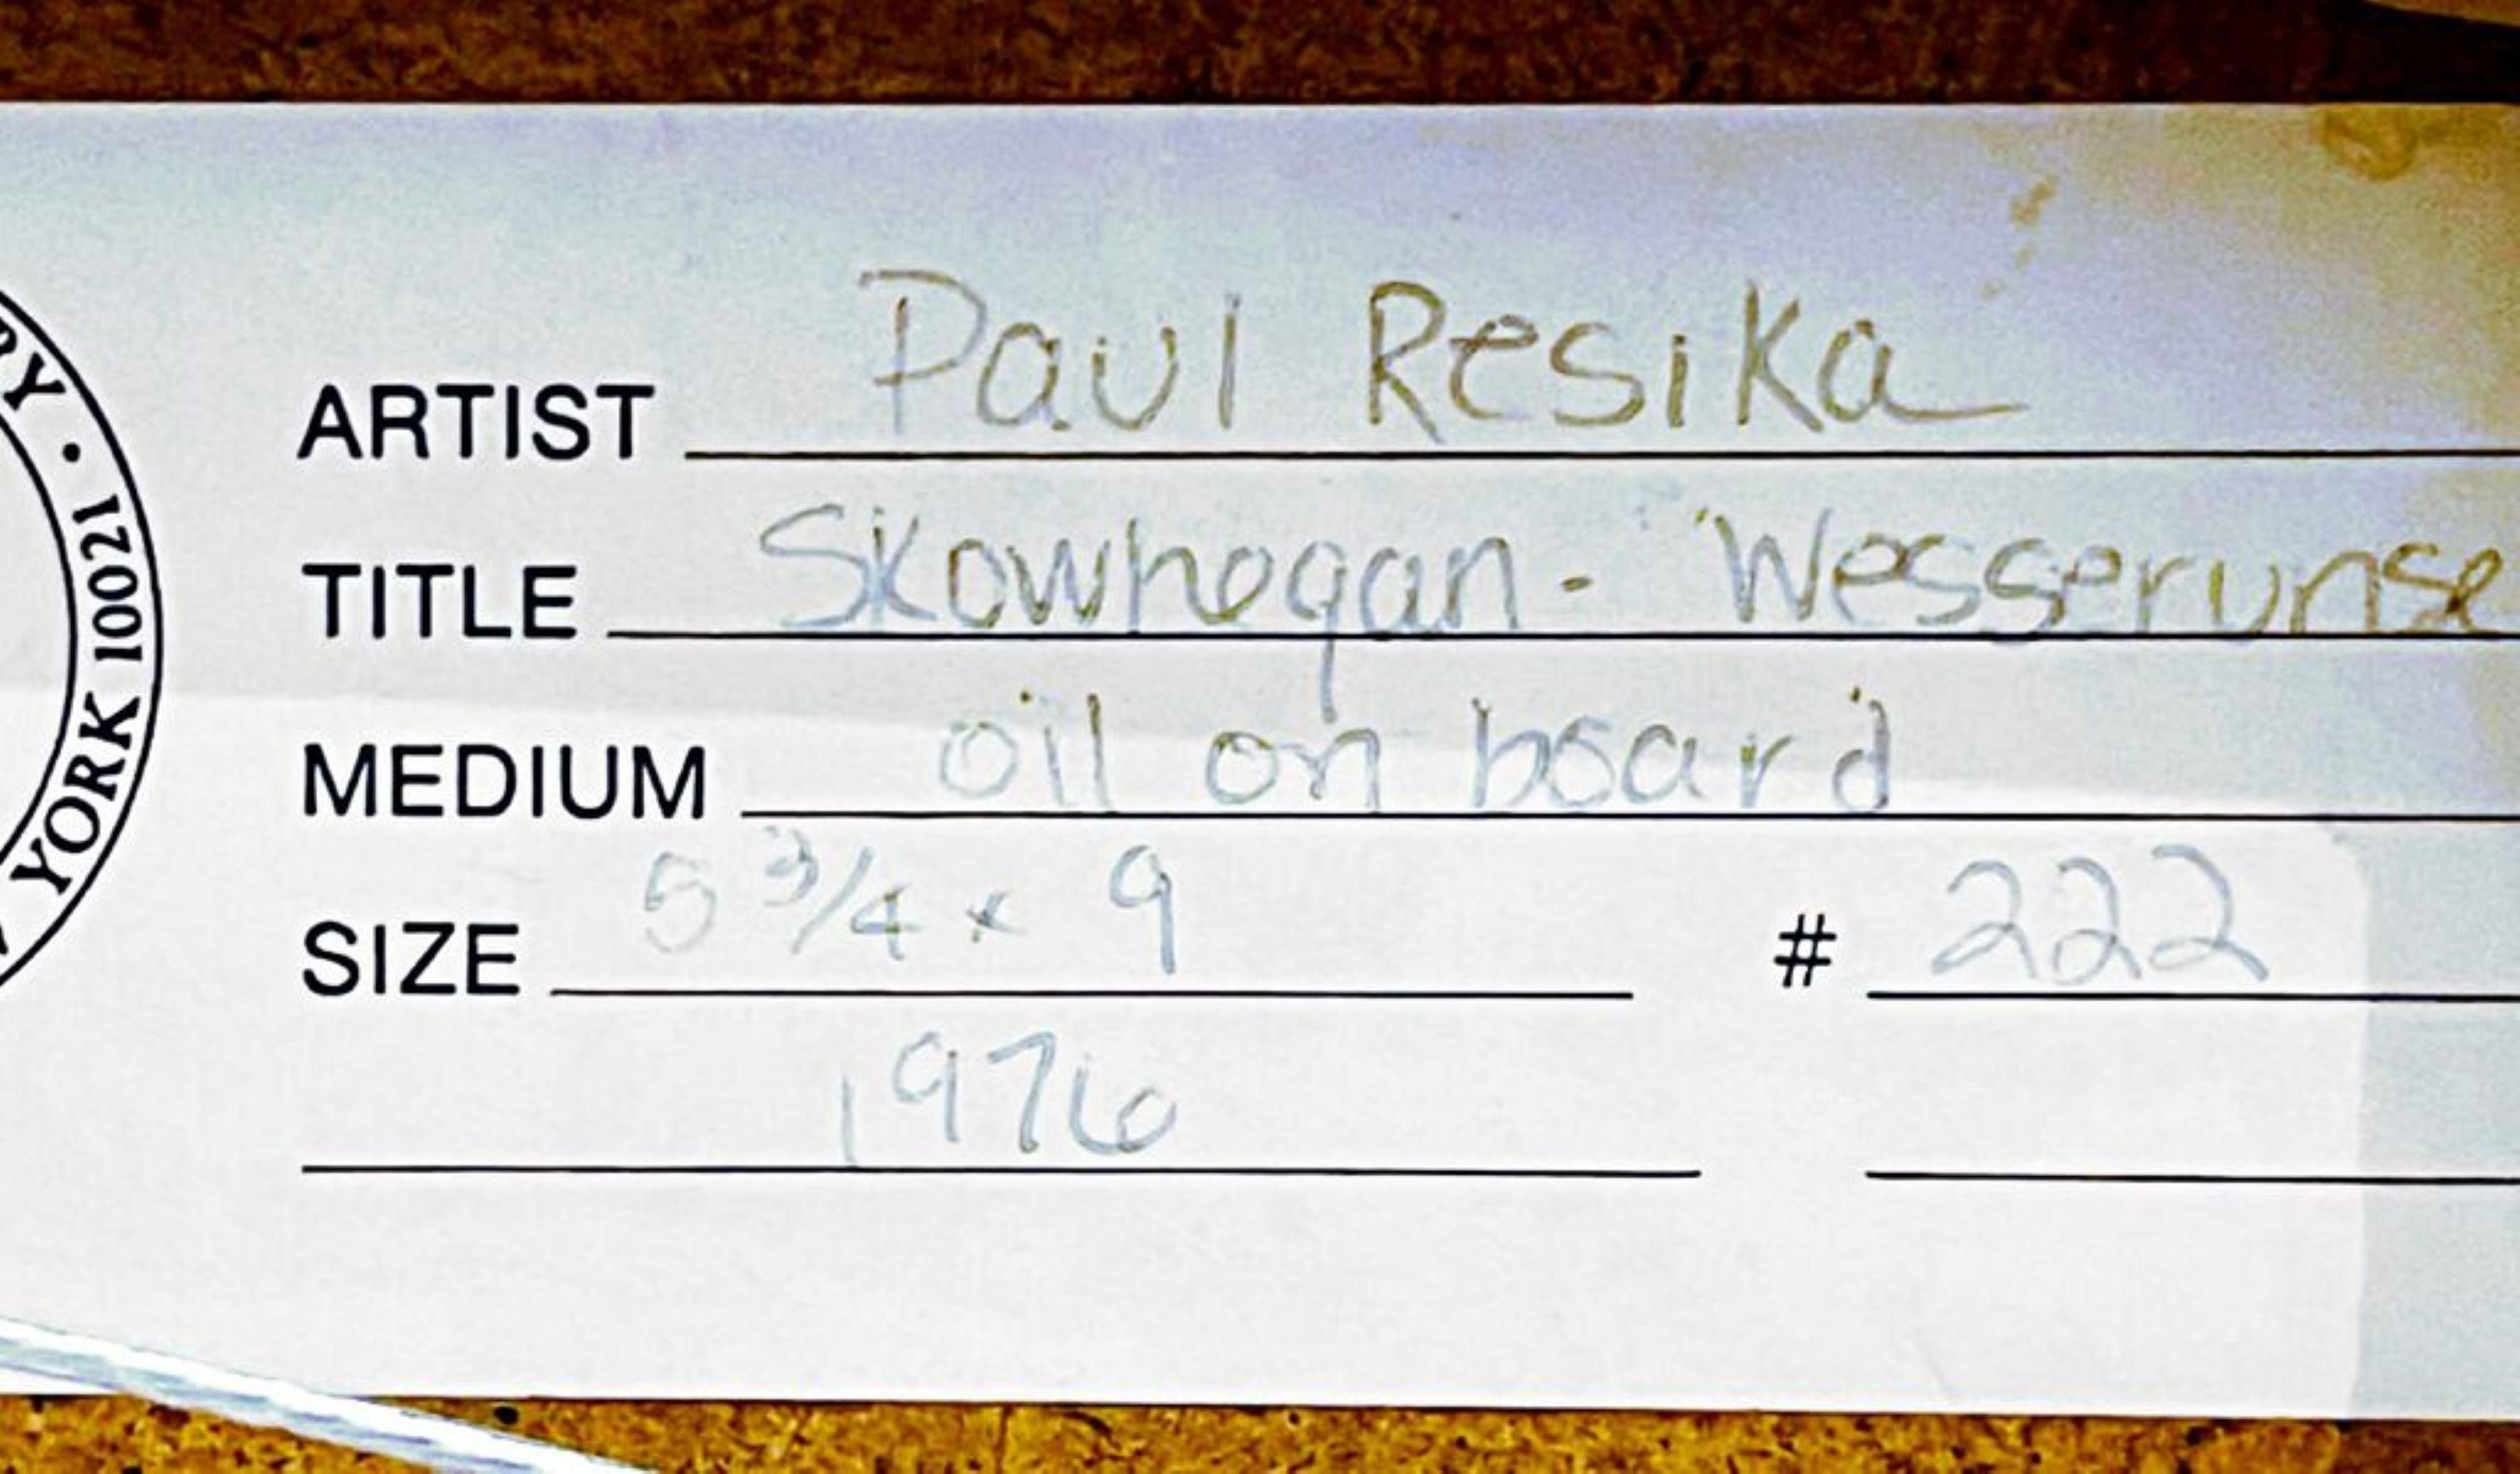 RY · YORK 10021
ARTIST Paul Resika
TITLE Skowhegan - Wesserunse
MEDIUM oil on board
SIZE 5 3/4 x 9 # 222
1976